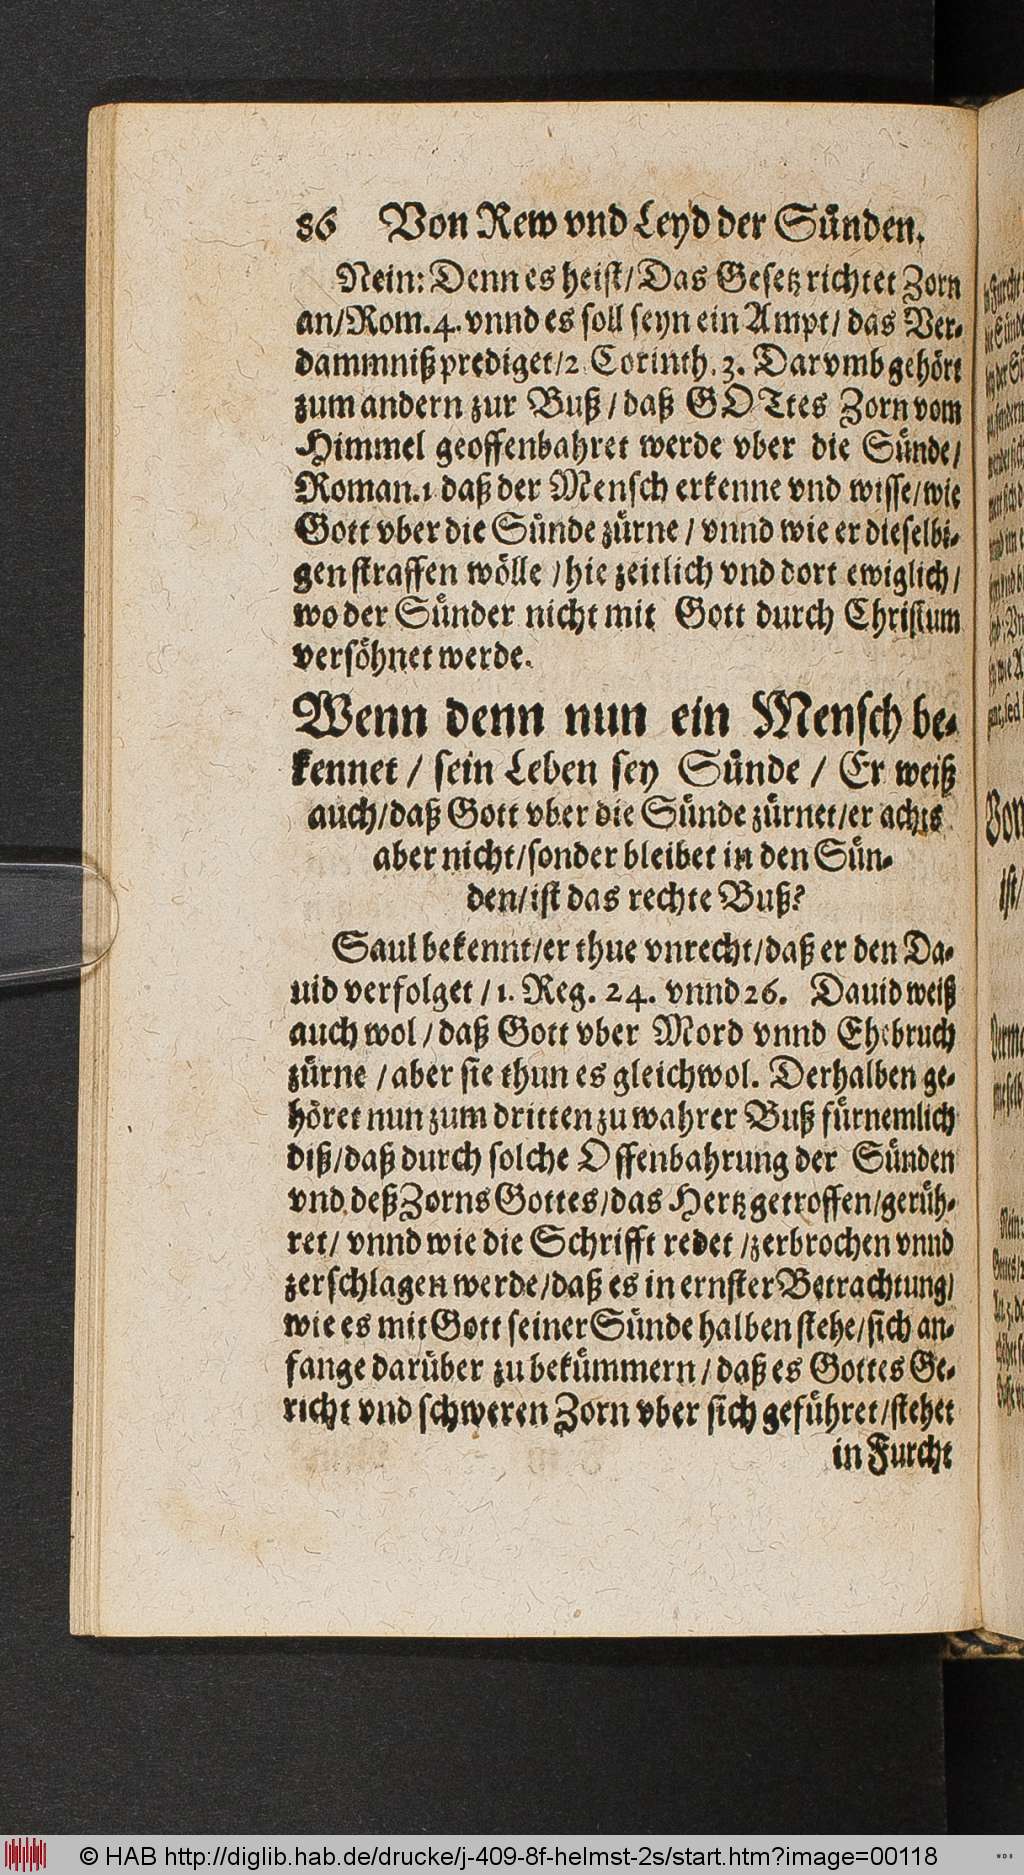 86 Von Rew vnd Leyd der Sünden.
Nein: Denn es heist/ Das Gesetz richtet Zorn
an/ Rom. 4. vnnd es soll seyn ein Ampt/ das Ver-
dammniß prediget/ 2. Corinth. 3. Darvmb gehört
zum andern zur Buß/ daß GOTtes Zorn vom
Himmel geoffenbahret werde vber die Sünde/
Roman. 1 daß der Mensch erkenne vnd wisse/ wie
Gott vber die Sünde zürne/ vnnd wie er dieselbi-
gen straffen wölle/ hie zeitlich vnd dort ewiglich/
wo der Sünder nicht mit Gott durch Christum
versöhnet werde.
Wenn denn nun ein Mensch be-
kennet/ sein Leben sey Sünde/ Er weiß
auch/ daß Gott vber die Sünde zürnet/ er achts
aber nicht/ sonder bleibet in den Sün-
den/ ist das rechte Buß?
Saul bekennt/ er thue vnrecht/ daß er den Da-
uid verfolget/ 1. Reg. 24. vnnd 26. Dauid weiß
auch wol/ daß Gott vber Mord vnnd Ehebruch
zürne/ aber sie thun es gleichwol. Derhalben ge-
höret nun zum dritten zu wahrer Buß fürnemlich
diß/ daß durch solche Offenbahrung der Sünden
vnd deß Zorns Gottes/ das Hertz getroffen/ gerüh-
ret/ vnnd wie die Schrifft redet/ zerbrochen vnnd
zerschlagen werde/ daß es in ernster Betrachtung/
wie es mit Gott seiner Sünde halben stehe/ sich an-
fange darüber zu bekümmern/ daß es Gottes Ge-
richt vnd schweren Zorn vber sich geführet/ stehet
in Furcht
© HAB http://diglib.hab.de/drucke/j-409-8f-helmst-2s/start.htm?image=00118